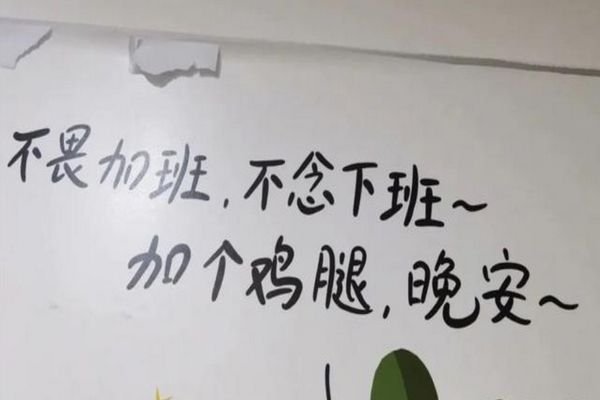 不畏加班，不念下班~
加个鸡腿，晚安~